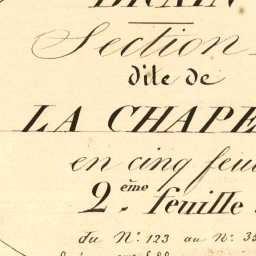 DRAIN
Section
dite de
LA CHAPE
en cinq feui
2ème feuille
du N° 123 au N° 35